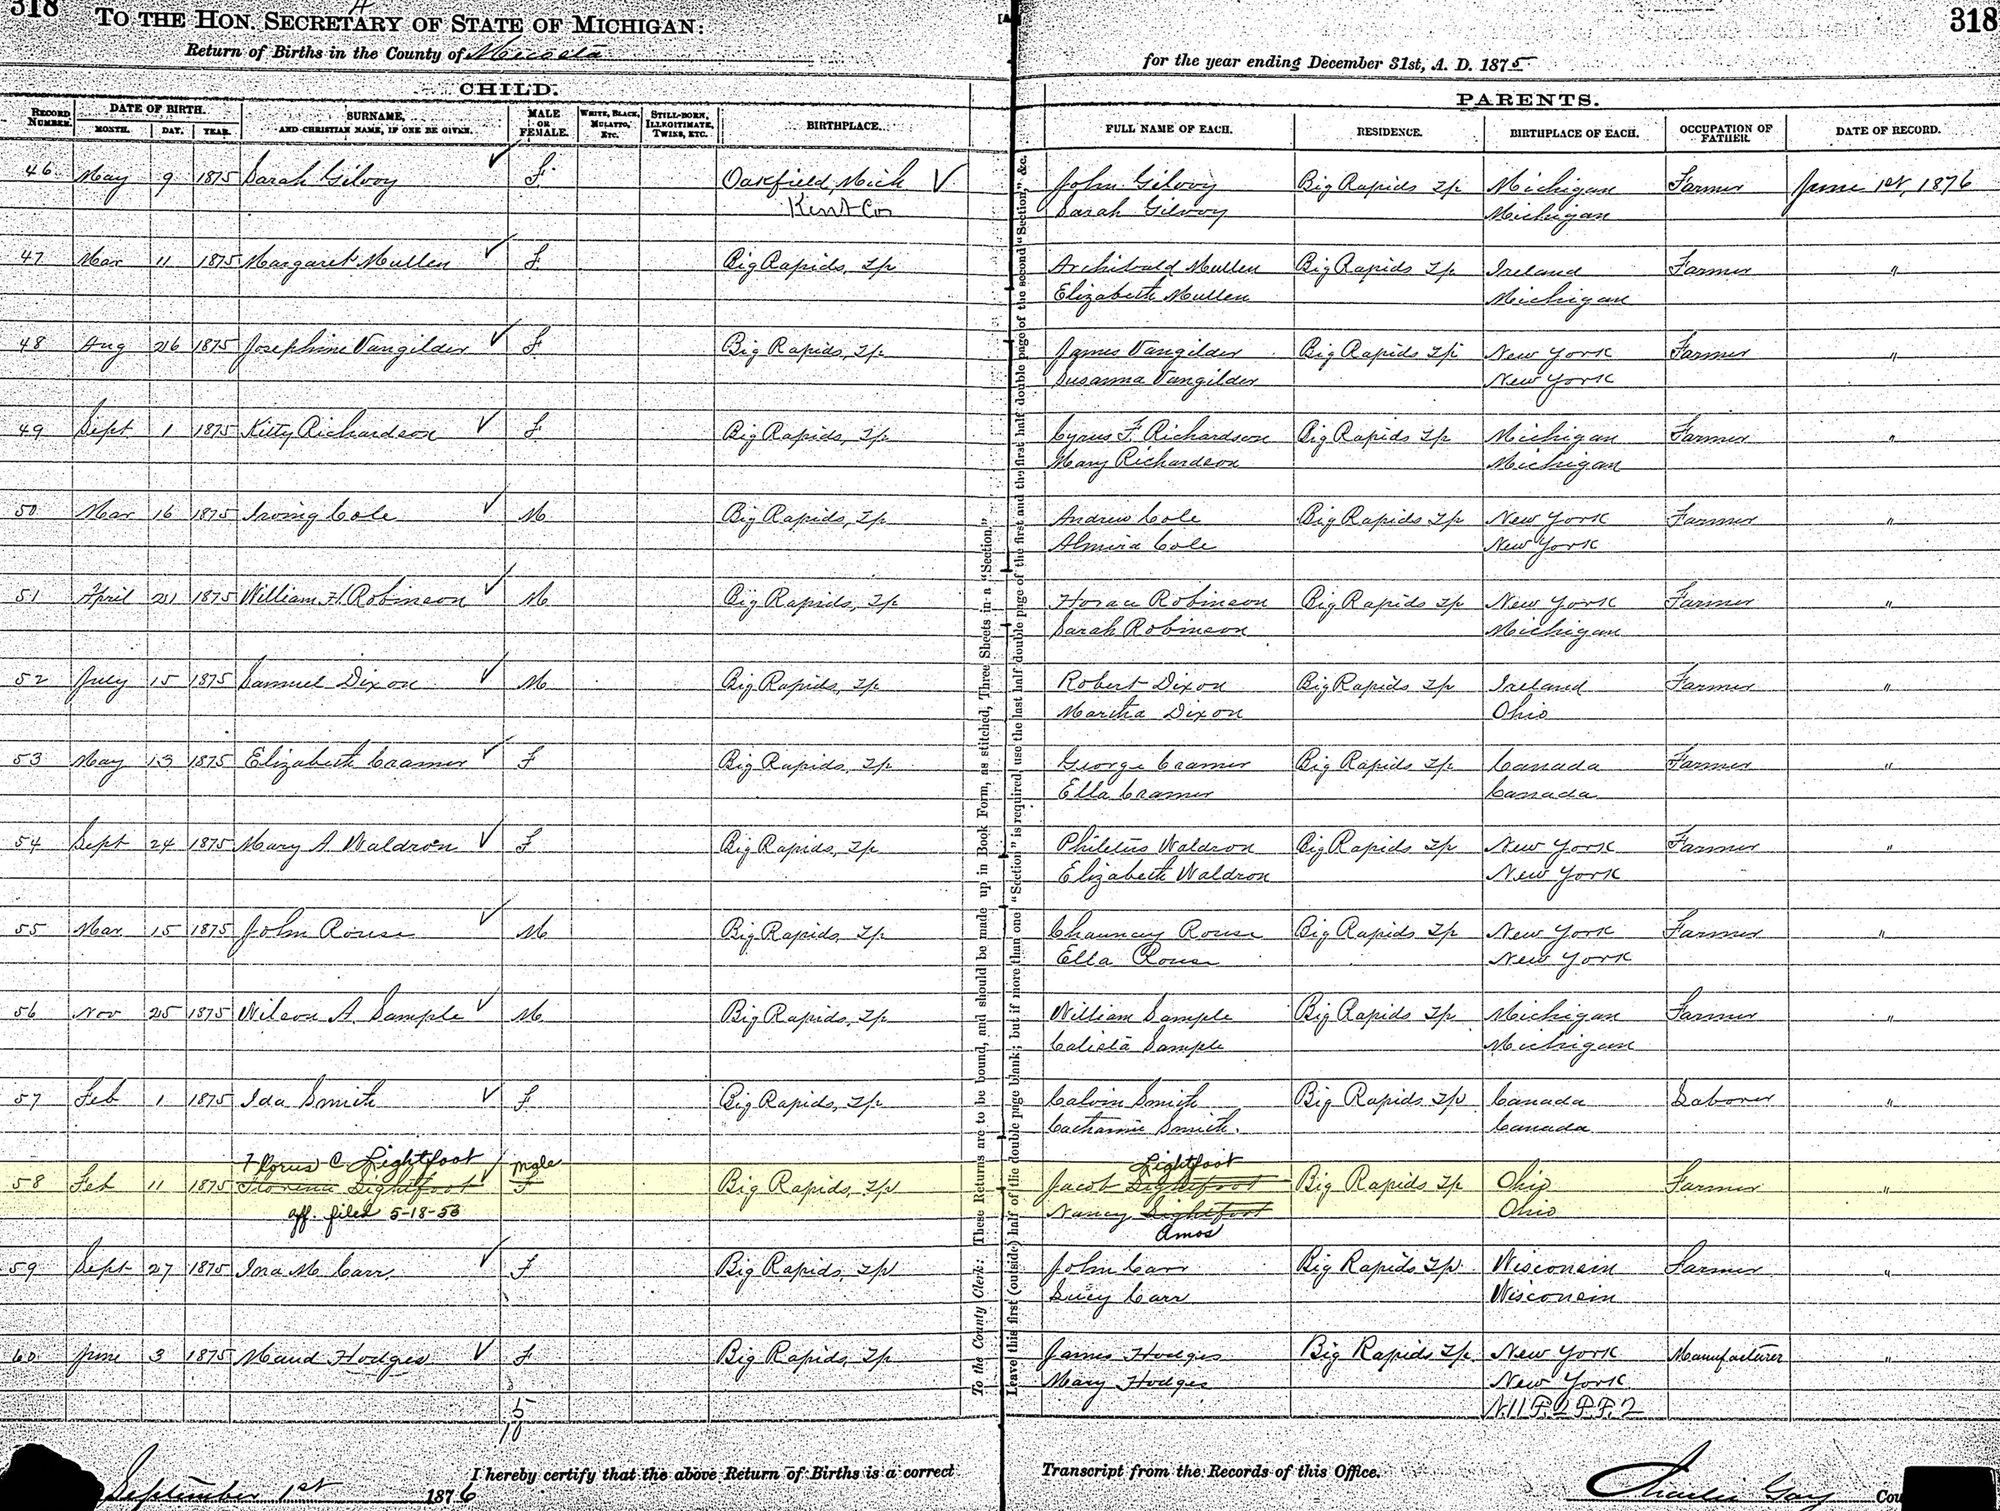 318
318
TO THE HON. SECRETARY OF STATE OF MICHIGAN:
Return of Births in the County of Mecosta
for the year ending December 31st, A. D. 1875
CHILD.
PARENTS.
RECORD NUMBER. DATE OF BIRTH. MONTH. DAY. YEAR. SURNAME, AND CHRISTIAN NAME, IF ONE BE GIVEN. MALE OR FEMALE. WHITE, BLACK, MULATTO, ETC. STILL-BORN, ILLEGITIMATE, TWINS, ETC. BIRTHPLACE. FULL NAME OF EACH. RESIDENCE. BIRTHPLACE OF EACH. OCCUPATION OF FATHER. DATE OF RECORD.
46 May 9 1875 Sarah Gilvoy F. Oakfield, Mich John Gilvoy Big Rapids Tp Michigan Farmer June 1st, 1876
Kent Co Sarah Gilvoy Michigan
47 Mar 11 1875 Margaret Mullen F. Big Rapids, Tp Archibald Mullen Big Rapids Tp Ireland Farmer "
Elizabeth Mullen Michigan
48 Aug 26 1875 Josephine Vangilder F Big Rapids, Tp James Vangilder Big Rapids Tp New York Farmer "
Susanna Vangilder New York
49 Sept 1 1875 Kitty Richardson F Big Rapids, Tp Cyrus F. Richardson Big Rapids Tp Michigan Farmer "
Mary Richardson Michigan
50 Mar 16 1875 Irving Cole M Big Rapids, Tp Andrew Cole Big Rapids Tp New York Farmer "
Almira Cole New York
51 April 21 1875 William H. Robinson M Big Rapids, Tp Horace Robinson Big Rapids Tp New York Farmer "
Sarah Robinson Michigan
52 July 15 1875 Samuel Dixon M Big Rapids, Tp Robert Dixon Big Rapids Tp Ireland Farmer "
Martha Dixon Ohio
53 May 13 1875 Elizabeth Cramer F Big Rapids, Tp George Cramer Big Rapids Tp Canada Farmer "
Ella Cramer Canada
54 Sept 24 1875 Mary A Waldron F Big Rapids, Tp Philetus Waldron Big Rapids Tp New York Farmer "
Elizabeth Waldron New York
55 Mar 15 1875 John Rouse M Big Rapids, Tp Chauncey Rouse Big Rapids Tp New York Farmer "
Ella Rouse New York
56 Nov 25 1875 Wilson A. Sample M Big Rapids, Tp William Sample Big Rapids Tp Michigan Farmer "
Calista Sample Michigan
57 Feb 1 1875 Ida Smith F Big Rapids, Tp Calvin Smith Big Rapids Tp Canada Laborer "
Catharine Smith. Canada
Florus C. Lightfoot male Lightfoot
58 Feb 11 1875 Florena Lightfoot F Big Rapids, Tp Jacob Lightfoot Big Rapids Tp Ohio Farmer "
aff. filed 5-18-53 Nancy Lightfoot Ohio
Amos
59 Sept 27 1875 Ina M Carr. F Big Rapids, Tp John Carr Big Rapids Tp. Wisconsin Farmer "
Lucy Carr Wisconsin
60 June 3 1875 Maud Hodges F Big Rapids, Tp James Hodges Big Rapids Tp. New York Manufacturer "
Mary Hodges New York
5
10
To the County Clerk: These Returns are to be bound, and should be made up in Book Form, as stitched, Three Sheets in a "Section."
Leave this first (outside) half of the double page blank; but if more than one "Section" is required, use the last half double page of the first and the first half double page of the second "Section," &c.
I hereby certify that the above Return of Births is a correct Transcript from the Records of this Office.
September 1st 1876 Charles Gay